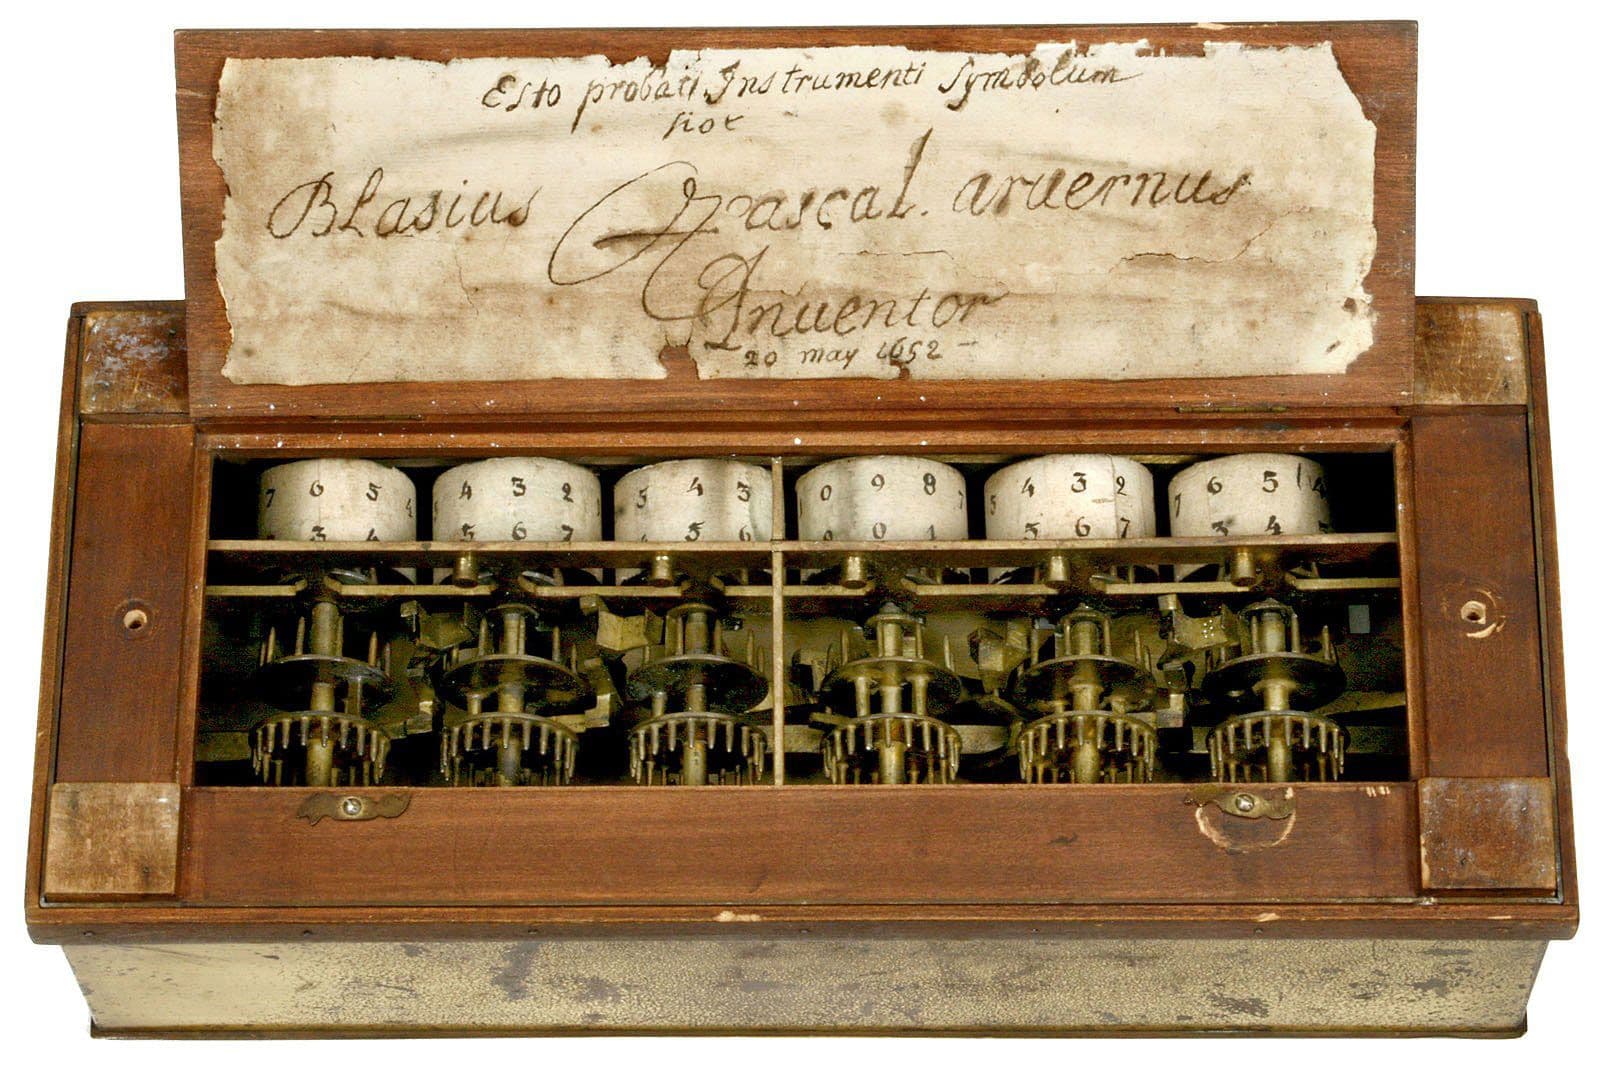 Esto probati Instrumenti Symbolum
hoc
Blasius Pascal. aruernus
Inuentor
20 may 1652
7 6 5 4 4 3 2 5 4 3 0 9 8 7 5 4 3 2 7 6 5 4
3 4 5 6 7 5 6 0 1 5 6 7 3 4